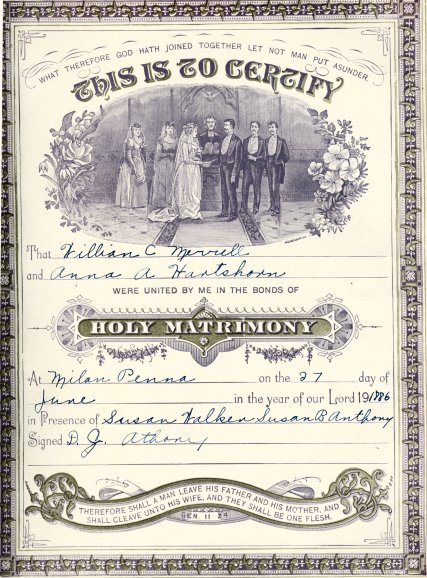 WHAT THEREFORE GOD HATH JOINED TOGETHER LET NOT MAN PUT ASUNDER.
THIS IS TO CERTIFY
That William C Merrill
and Anna A Hartshorn
WERE UNITED BY ME IN THE BONDS OF
HOLY MATRIMONY
At Milan Penna on the 27 day of
June in the year of our Lord 191886
in Presence of Susan Walker Susan B Anthony
Signed D. J. Athony
THEREFORE SHALL A MAN LEAVE HIS FATHER AND HIS MOTHER, AND
SHALL CLEAVE UNTO HIS WIFE, AND THEY SHALL BE ONE FLESH.
GEN. II 24